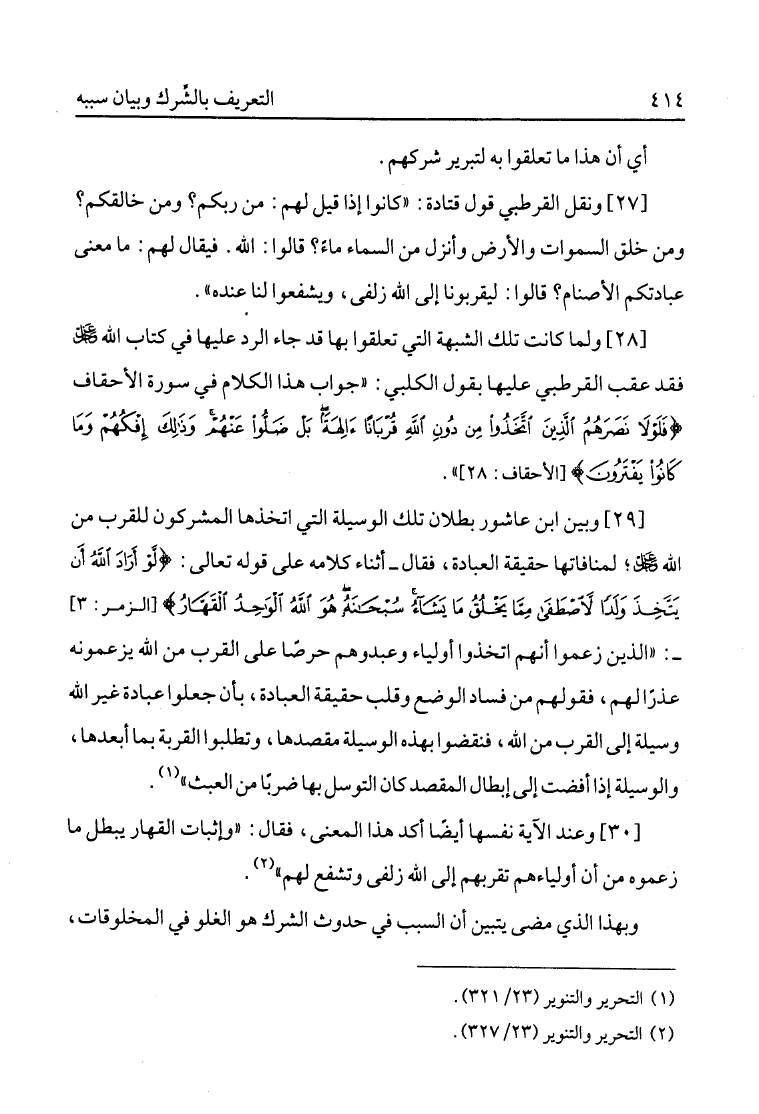 ٤١٤ التعريف بالشِّرك وبيان سببه
أي أن هذا ما تعلقوا به لتبرير شركهم .
[٢٧] ونقل القرطبي قول قتادة : «كانوا إذا قيل لهم : من ربكم؟ ومن خالقكم؟
ومن خلق السموات والأرض وأنزل من السماء ماءً؟ قالوا : الله . فيقال لهم : ما معنى
عبادتكم الأصنام؟ قالوا : ليقربونا إلى الله زلفى، ويشفعوا لنا عنده» .
[٢٨] ولما كانت تلك الشبهة التي تعلقوا بها قد جاء الرد عليها في كتاب الله ﷻ
فقد عقب القرطبي عليها بقول الكلبي : «جواب هذا الكلام في سورة الأحقاف
﴿فَلَوْلَا نَصَرَهُمُ ٱلَّذِينَ ٱتَّخَذُوا۟ مِن دُونِ ٱللَّهِ قُرْبَانًا ءَالِهَةًۢ ۖ بَلْ ضَلُّوا۟ عَنْهُمْ ۚ وَذَٰلِكَ إِفْكُهُمْ وَمَا
كَانُوا۟ يَفْتَرُونَ﴾ [الأحقاف : ٢٨]» .
[٢٩] وبين ابن عاشور بطلان تلك الوسيلة التي اتخذها المشركون للقرب من
الله ﷻ؛ لمنافاتها حقيقة العبادة، فقال ـ أثناء كلامه على قوله تعالى : ﴿لَّوْ أَرَادَ ٱللَّهُ أَن
يَتَّخِذَ وَلَدًا لَّٱصْطَفَىٰ مِمَّا يَخْلُقُ مَا يَشَآءُ ۚ سُبْحَـٰنَهُۥ ۖ هُوَ ٱللَّهُ ٱلْوَٰحِدُ ٱلْقَهَّارُ﴾ [الزمر : ٣]
ـ : «الذين زعموا أنهم اتخذوا أولياء وعبدوهم حرصًا على القرب من الله يزعمونه
عذرًا لهم، فقولهم من فساد الوضع وقلب حقيقة العبادة، بأن جعلوا عبادة غير الله
وسيلة إلى القرب من الله، فنقضوا بهذه الوسيلة مقصدها، وتطلبوا القربة بما أبعدها،
والوسيلة إذا أفضت إلى إبطال المقصد كان التوسل بها ضربًا من العبث»(١) .
[٣٠] وعند الآية نفسها أيضًا أكد هذا المعنى، فقال : «وإثبات القهار يبطل ما
زعموه من أن أولياءهم تقربهم إلى الله زلفى وتشفع لهم»(٢) .
وبهذا الذي مضى يتبين أن السبب في حدوث الشرك هو الغلو في المخلوقات،
(١) التحرير والتنوير (٢٣/ ٣٢١) .
(٢) التحرير والتنوير (٢٣/ ٣٢٧) .